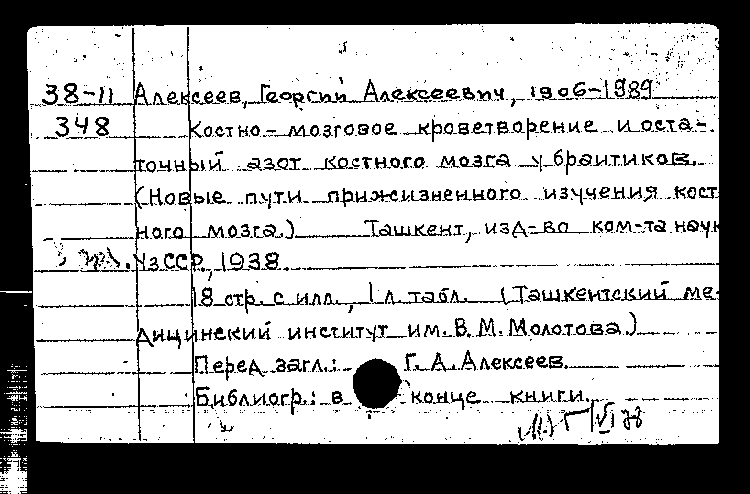 38-11 Алексеев, Георгий Алексеевич, 1906-1989
348 Костно-мозговое кроветворение и оста-
точный азот костного мозга у браитиков.
(Новые пути прижизненного изучения кост
ного мозга.) Ташкент, изд-во ком-та наук
УзССР, 1938.
18 стр. с илл., 1 л. табл. (Ташкентский ме-
дицинский институт им. В. М. Молотова.)
Перед загл.: Г. А. Алексеев.
Библиогр.: в конце книги.